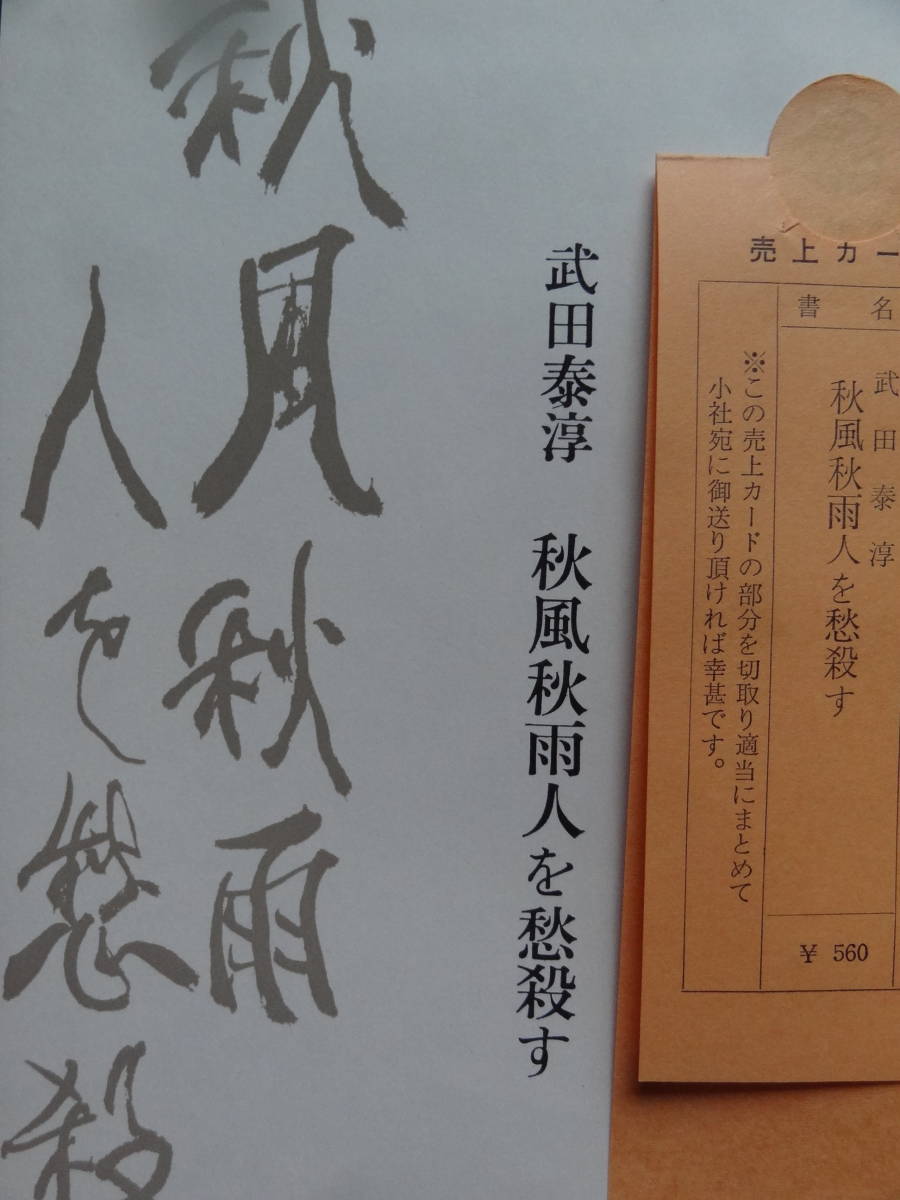 売上カー
書名
武田泰淳
秋風秋雨人を愁殺す
¥ 560
※この売上カードの部分を切取り適当にまとめて
小社宛に御送り頂ければ幸甚です。
武田泰淳 秋風秋雨人を愁殺す
秋風秋雨
人を愁殺